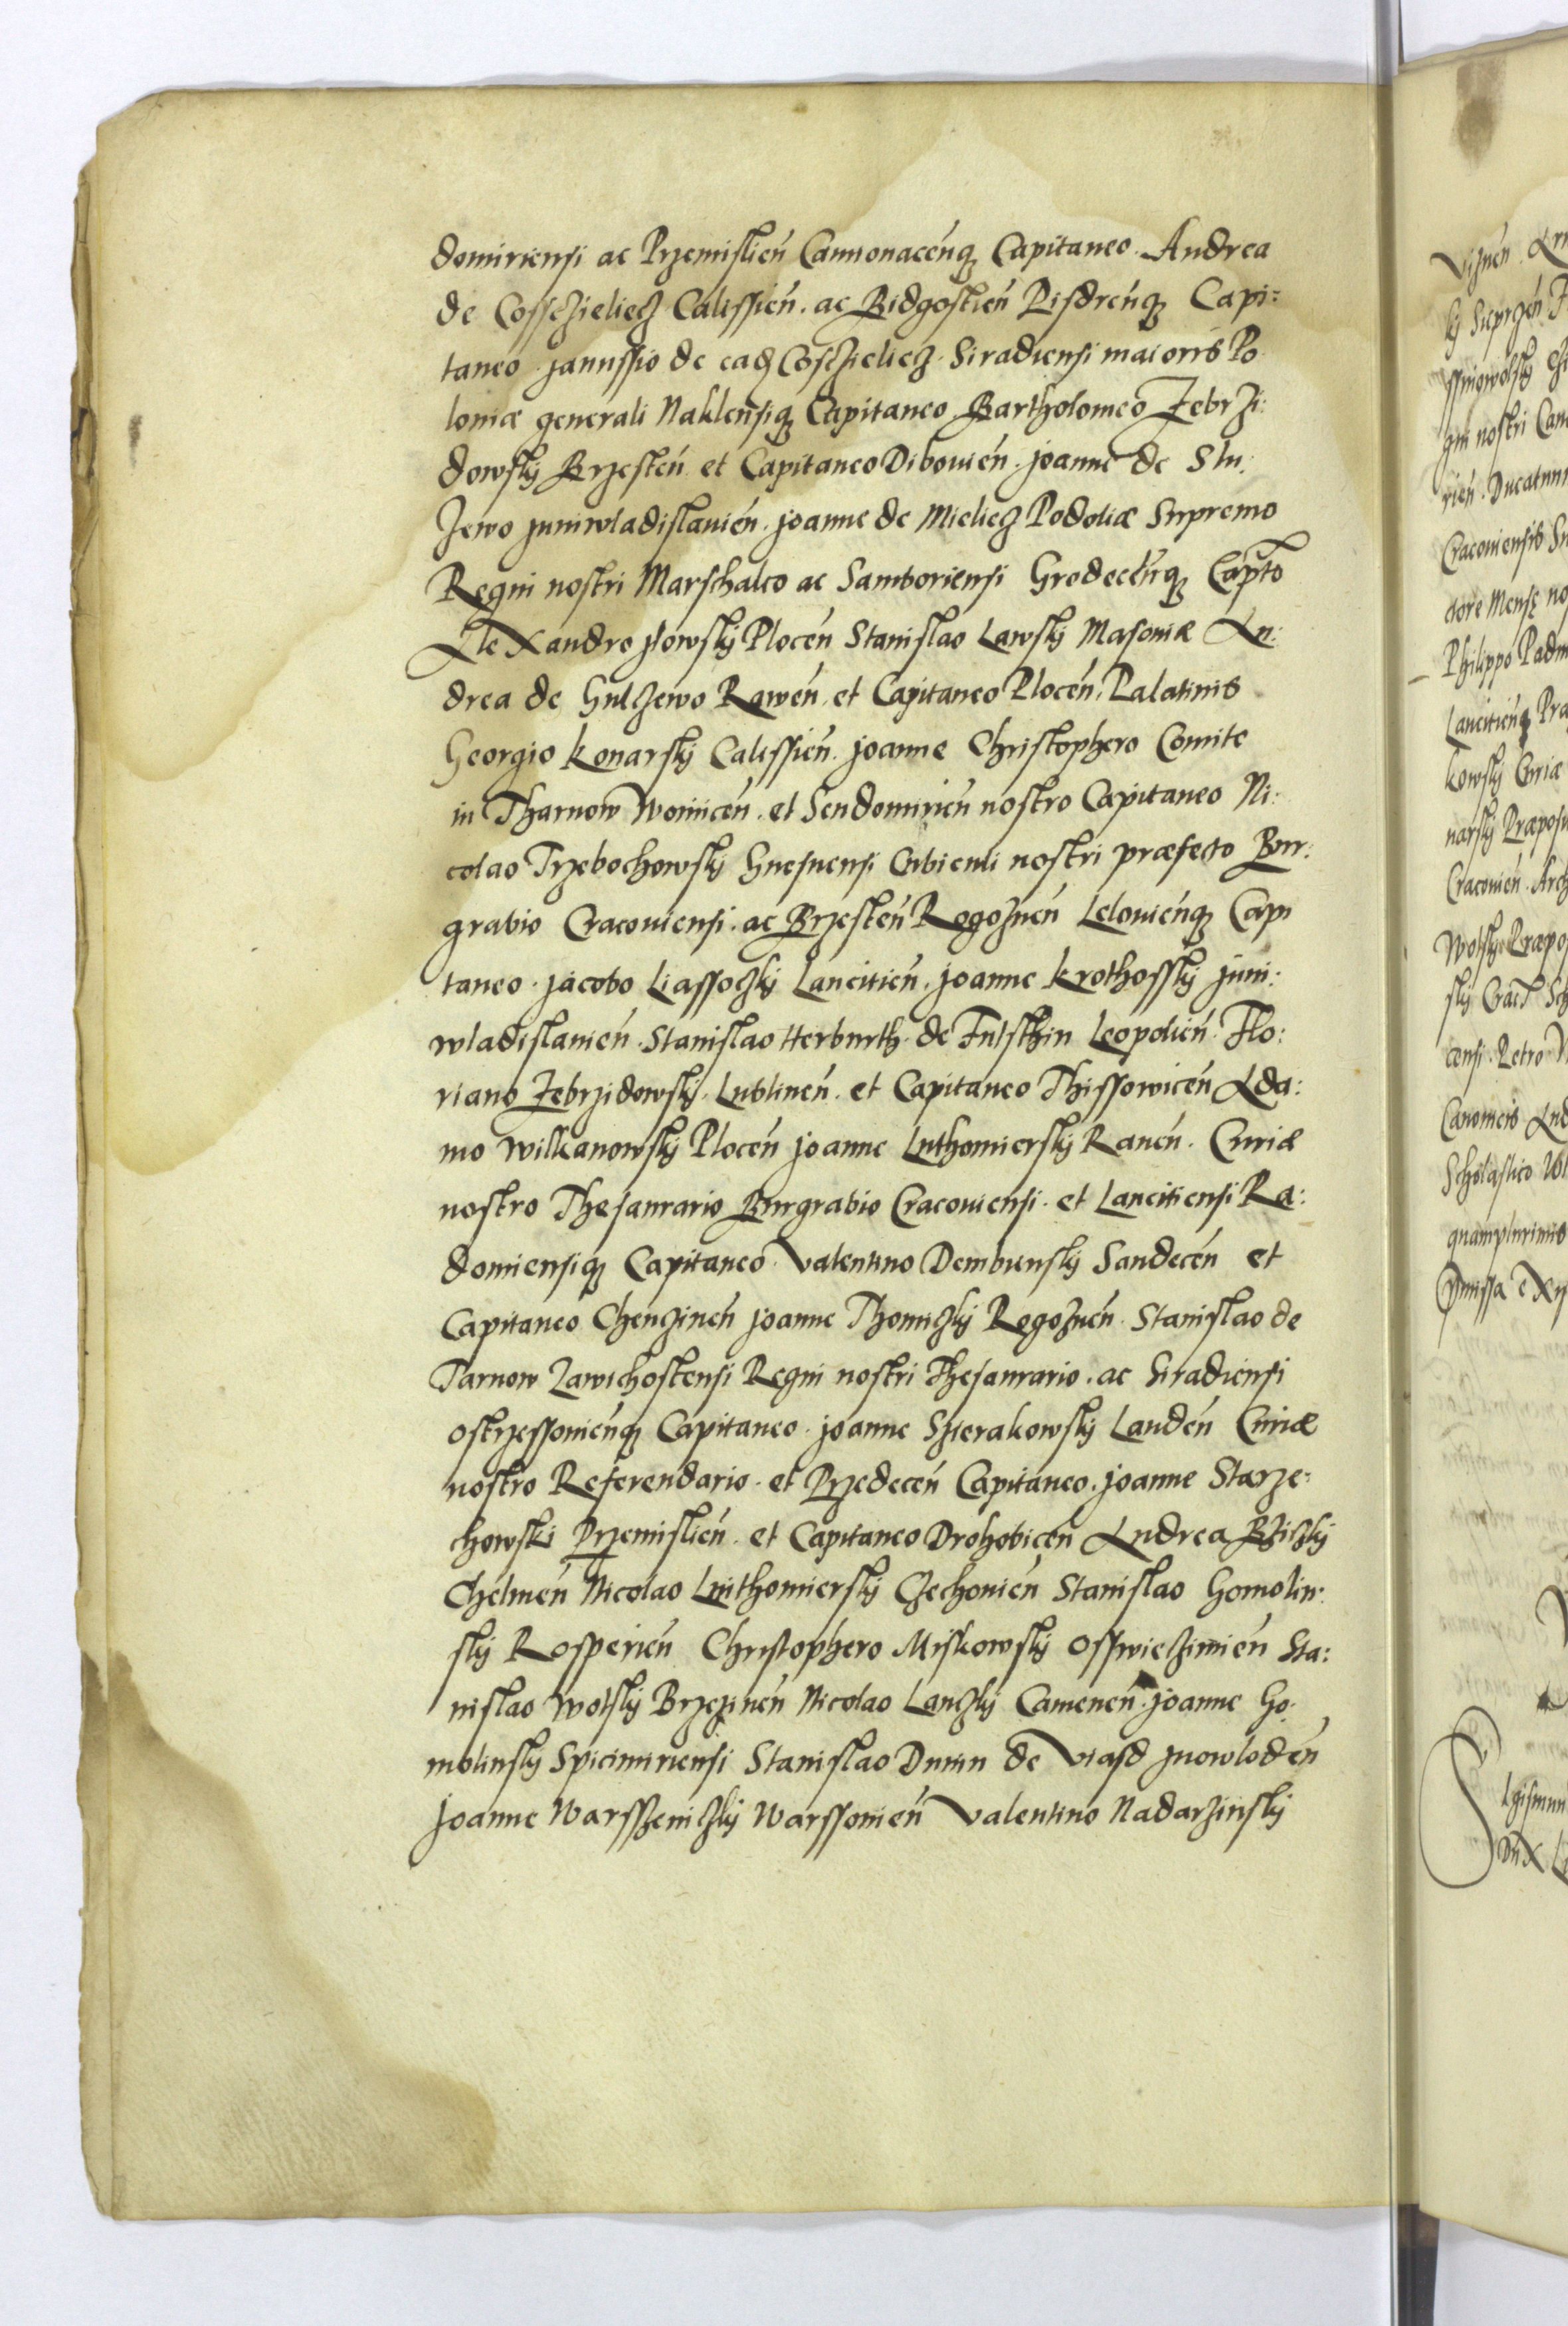 domiriensi ac Przemislien̄ Camionacen̄qꝫ Capitaneo. Andrea
de Cosscziielecz Calissien̄. ac Bidgostien̄ Pisdren̄qꝫ Capi:
taneo. janussio de eadē Coscziielecz. Siradiensi maioris Po
loniæ generali Naklensiqꝫ Capitaneo. Bartholomeo Zebrzi:
dowskÿ Brzesten̄. et Capitaneo Dibouien̄. joanne de Slu:
zewo juniwladislauien̄. joanne de Mieliecz Podoliæ Supremo
Regni nostri Marschalco ac Samboriensi Grodecēn̄qꝫ Capto
Alexandro jlowskÿ Plocen̄ Stanislao Lawskÿ Masoniæ An:
drea de Gulczewo Rawen̄. et Capitaneo Plocen̄. Palatinis
Georgio konarskÿ Calissien̄. joanne Christophero Comite
in Tharnow Woinicen̄. et Sendomirien̄ nostro Capitaneo Ni:
colao Trzebochowskÿ Gnesnensi Cubiculi nostri præfecto Bur:
grabio Cracouiensi. ac Brzesten̄ Rogoznen̄ Lelouien̄qꝫ Capi
taneo. jacobo Liassoczkÿ Lancitien̄. joanne krothosskÿ juni:
wladislauien̄. Stanislao Herburth. de Fulsthin Leopolien̄. Flo:
riano Zebrzidowskÿ. Lublinen̄. et Capitaneo Thissowicen̄ Ada:
mo Wilkanowskÿ Plocen̄ joanne Luthomierskÿ Rauen̄. Curiæ
nostro Thesaurario Burgrabio Cracouiensi. et Lancitiensi Ra:
domiensiqꝫ Capitaneo. Valentino Dembienskÿ Sandecen̄ et
Capitaneo Chenczinen̄ joanne Thomiczkÿ Rogoznen̄. Stanislao de
Tarnow Zawichostensi Regni nostri Thesaurario. ac Siradiensi
Ostrzessouien̄qꝫ Capitaneo. joanne Szierakowskÿ Landen̄ Curiæ
nostro Referendario. et Przedecen̄ Capitaneo. joanne Starze:
chowski Przemislien̄. et Capitaneo Drohobicen̄ Andrea Bziczkÿ
Chelmen̄ Nicolao Luthomierskÿ Czechouien̄ Stanislao Gomolin:
skÿ Rosperien̄ Christophero Miskowskÿ Osswieczimien̄ Sta:
nislao Wolskÿ Brzezinen̄ Nicolao Lanczkÿ Camenen̄. joanne Go:
molinskÿ Spicimiriensi Stanislao Dunin de Viasd jnowloden̄
joanne Warsszeniczkÿ Warssouien̄ Valentino Nadarzinskÿ